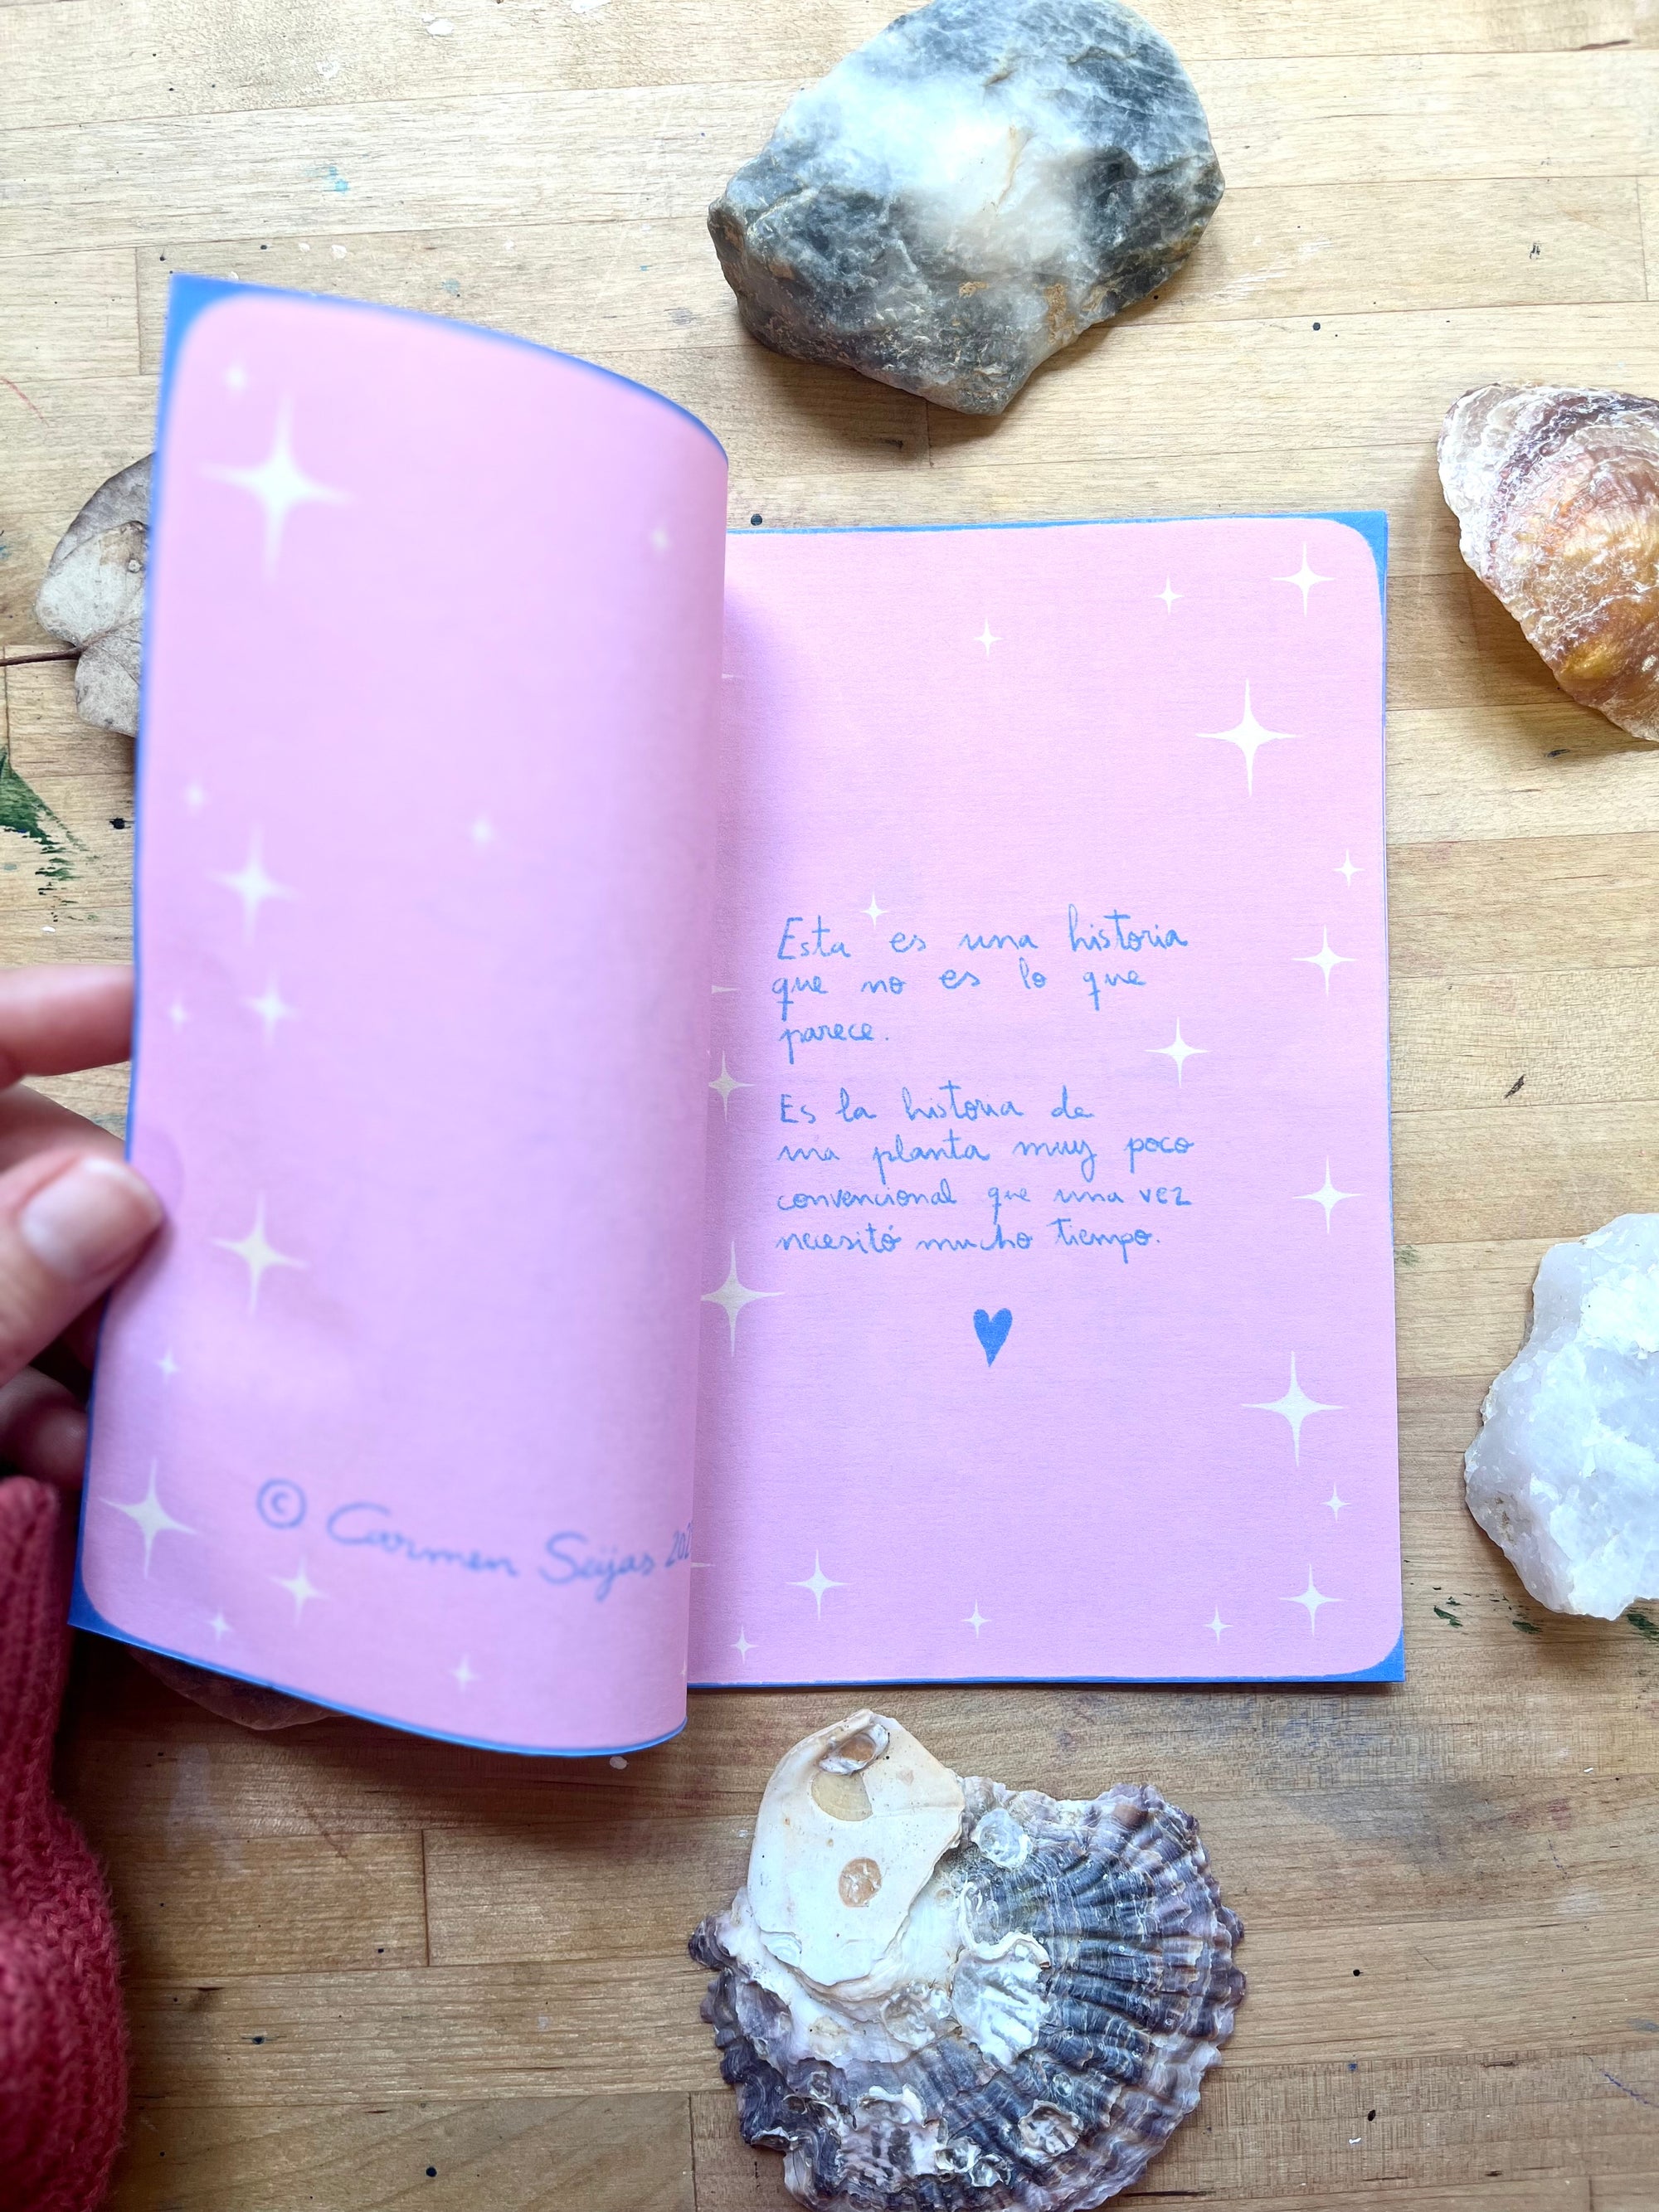 © Carmen Seijas
Esta es una historia
que no es lo que
parece.
Es la historia de
una planta muy poco
convencional que una vez
necesitó mucho tiempo.